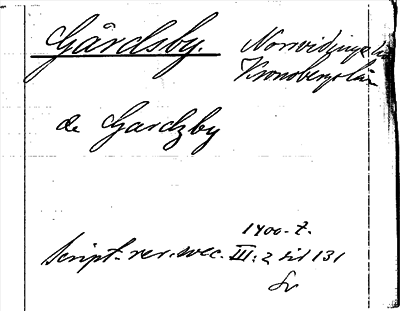 Gårdsby. Norrvidinge hd
Kronobergs län
de Gardzby
1400-t.
Script. rer. svec. III: 2 sid 131